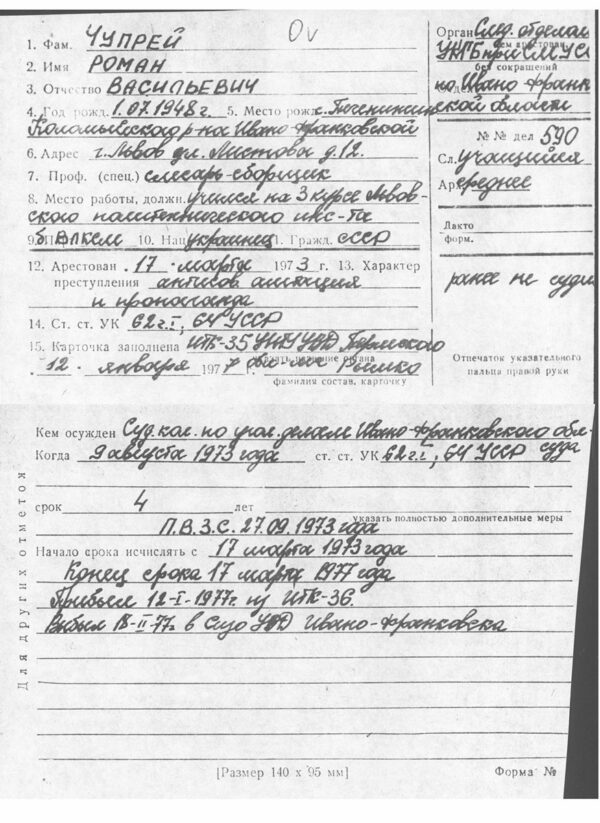 Ov
1. Фам. ЧУПРЕЙ
2. Имя РОМАН
3. Отчество ВАСИЛЬЕВИЧ
4. Год рожд. 1.07.1948 г. 5. Место рожд. с.
Коломыйского р-на Ивано-Франковской области
6. Адрес г. Львов ул. д. 12.
7. Проф. (спец.) слесарь-сборщик
8. Место работы, должн. учился на 3 курсе Львов-
ского политехнического инс-та
9. П б/ВЛКСМ 10. Нац. украинец 11. Гражд. СССР
12. Арестован 17 марта 1973 г. 13. Характер
преступления антисов. агитация
и пропаганда
14. Ст. ст. УК 62 ч. I, 64 УССР
15. Карточка заполнена ИТК-35 УИТУ УВД Пермского
указать название органа
12 января 1977
фамилия состав. карточку
Орган След. отделом
УКГБ при СМ УССР
кем арестован
без сокращений
по Ивано-Франк
№ № дел 590
Сл. учащийся
среднее
Дакто
форм.
ранее не суди
Отпечаток указательного
пальца правой руки
Кем осужден Суд. кол. по угол. делам Ивано-Франковского обл-
суда
Когда 9 августа 1973 года ст. ст. УК 62 ч. I, 64 УССР
срок 4 лет
указать полностью дополнительные меры
П.В.З.С. 27.09.1973 года
Начало срока исчислять с 17 марта 1973 года
Конец срока 17 марта 1977 года
Прибыл 12-I-1977г. из ИТК-36.
Выбыл 18-II-77г. в УВД Ивано-Франковска
Для других отметок
[Размер 140 х 95 мм]
Форма №